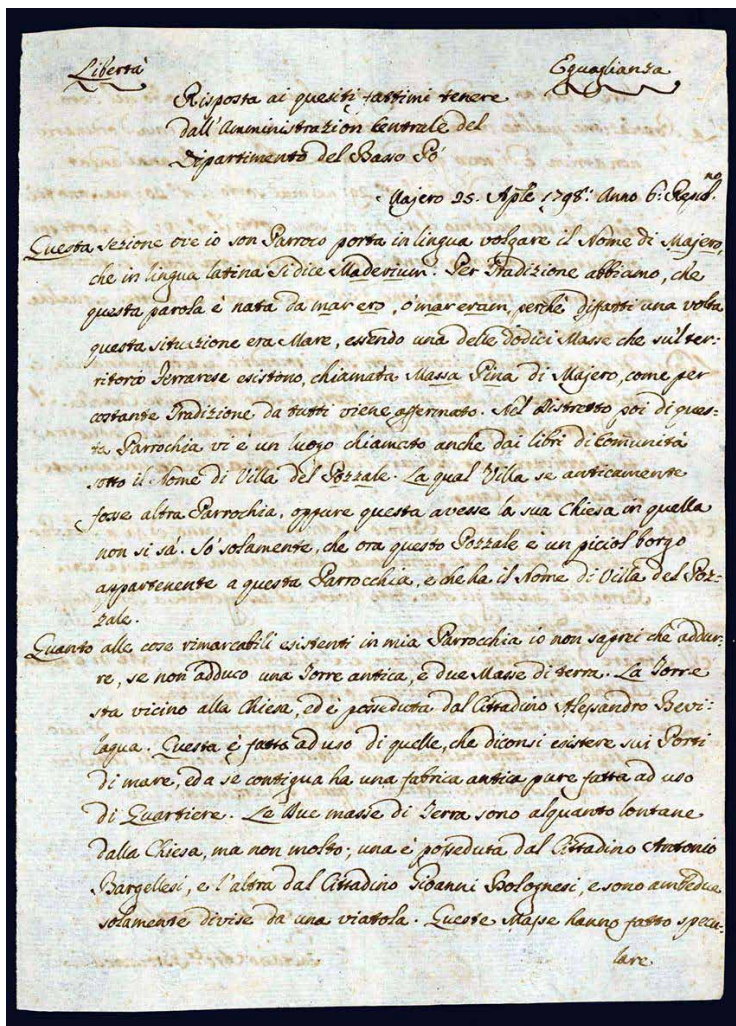 Libertà Eguaglianza
Risposta ai quesiti fattimi tenere
dall'Amministrazion Centrale del
Dipartimento del Basso Pò
Majero 25. Aple 1798: Anno 6: Repub.no
Questa sezione ove io son Parroco porta in lingua volgare il Nome di Majero,
che in lingua latina si dice Maderium. Per Tradizione abbiamo, che
questa parola è nata da mar ero, ò mareram, perchè diffatti una volta
questa situazione era Mare, essendo una delle dodici Masse che sul ter-
ritorio Ferrarese esistono, chiamata Massa Pina di Majero, come per
costante Tradizione da tutti viene affermato. Nel Distretto poi di ques-
ta Parrochia vi è un luogo chiamato anche dai libri di comunità
sotto il Nome di Villa del Pozzale. La qual Villa se anticamente
fosse altra Parrochia, oppure questa avesse la sua Chiesa in quella
non si sà. Sò solamente, che ora questo Pozzale è un piciol borgo
appartenente a questa Parrocchia, e che ha il Nome di Villa del Poz-
zale.
Quanto alle cose rimarcabili esistenti in mia Parrocchia io non saprei che addur-
re, se non adduco una Torre antica, e due Masse di terra. La Torre
sta vicino alla Chiesa, ed è posseduta dal Cittadino Alessandro Bevi-
laqua. Questa è fatta ad uso di quelle, che diconsi esistere sui Porti
di mare, ed a se contigua ha una fabrica antica pure fatta ad uso
di Quartiere. Le Due masse di Terra sono alquanto lontane
dalla Chiesa, ma non molto; una è posseduta dal Cittadino Antonio
Bargellesi, e l'altra dal Cittadino Gioanni Bolognesi, e sono ambedue
solamente divise da una viatola. Queste Masse hanno fatto specu-
lare.